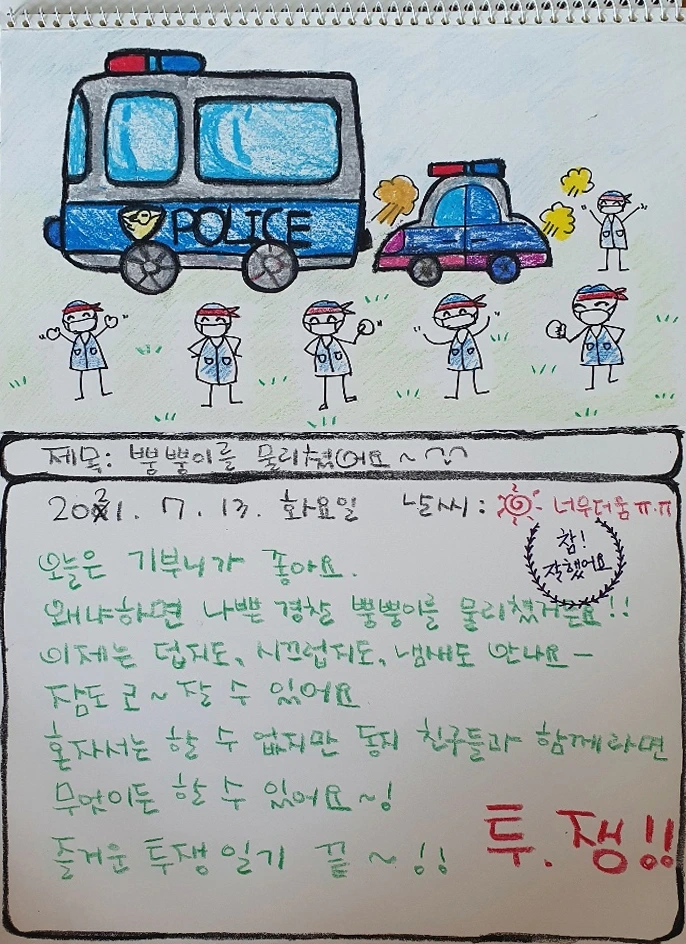 POLICE
제목: 뿡뿡이를 물리쳤어요~^^
2021. 7. 13. 화요일 날씨: 너무더움ㅠ.ㅠ
참!
잘했어요
오늘은 기부니가 좋아요.
왜냐하면 나쁜 경찰 뿡뿡이를 물리쳤거든요!!
이제는 덥지도, 시끄럽지도, 냄새도 안나요-
잠도 코~ 잘 수 있어요
혼자서는 할 수 없지만 동지 친구들과 함께라면
무엇이든 할 수 있어요~!
즐거운 투쟁일기 끝~!!
투.쟁!!